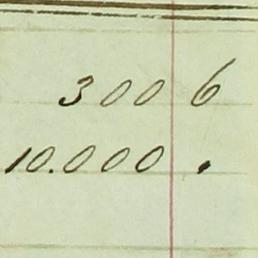 300 6
10.000 .